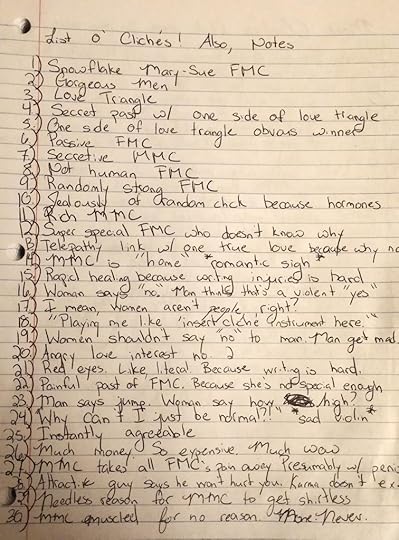 List O' Clichés! Also, Notes
1) Snowflake Mary-Sue FMC
2) Gorgeous Men
3) Love Triangle
4) Secret past w/ one side of love triangle
5) One side of love triangle obvous winner
6) Passive FMC
7) Secretive MMC
8) Not human FMC
9) Randomly strong FMC
10) Jealously of random chick because hormones
11) Rich MMC
12) Super special FMC who doesn't know why
13) Telepathy link w/ one true love because why no
14) MMC is "home" *romantic sigh*
15) Rapid healing because writing injuries is hard
16) Woman says "no." Man thinks that's a violent "yes"
17) I mean, women aren't people right?
18) "Playing me like *insert cliché instrument here."
19) Women shouldn't say "no" to man. Man get mad.
20) Angry love interest no. 2
21) Red eyes. Like literal. Because writing is hard.
22) Painful past of FMC. Because she's no special enough
23) Man says jump. Woman say how high?
24) "Why can't I just be normal?!" *sad violin*
25) Instantly agreeable
26) Much money. So expensive. Much wow
27) MMC takes all FMC's pain away. Presumably w/ peni
8) Attractive guy says he won't hurt you. Karma doesn't ex.
Needless reason for MMC to get shirtless
30) MMC muscled for no reason. More Never.